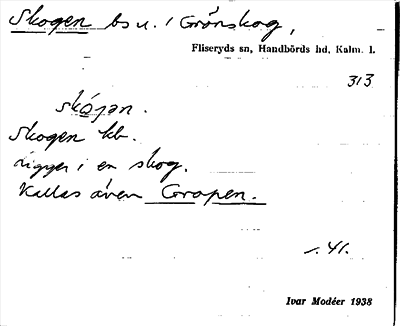 Skogen bs u. i Grönskog,
Fliseryds sn, Handbörds hd, Kalm. l.
313
skójan.
Skogen kb.
Ligger i en skog.
Kallas även Grapen.
1.41.
Ivar Modéer 1938